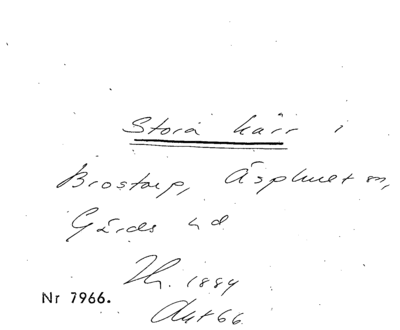 Stora kärr i
Brostorp, Äsphult sn,
Gärds hd.
Th. 1884
Nr 7966.
Akt 66